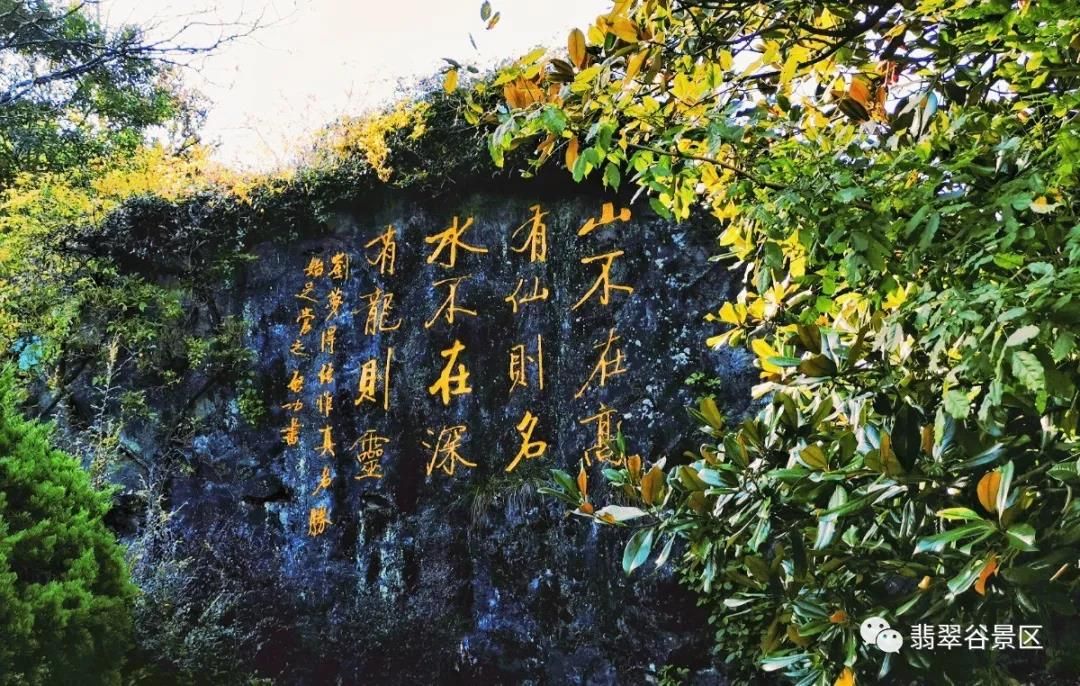 山不在高
有仙則名
水不在深
有龍則靈
劉夢得
真名勝
足當之啟功書
翡翠谷景区